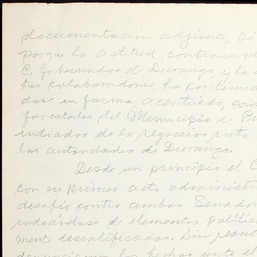 documentacion adjunta, Si
porque la actitud contumaz
C. Gobernador de Durango, y la
tos colaboradores, ha continua
dose en forma acentuada, com
forestales del Municipio de Pu
indiador de la regresion
las autoridades de Durango.
Desde un principio el C
con su primer acto administ
desafío contra ambos Senador
rodeándose de elementos polític
mente descalificados. Sin resul
los hechos ante el